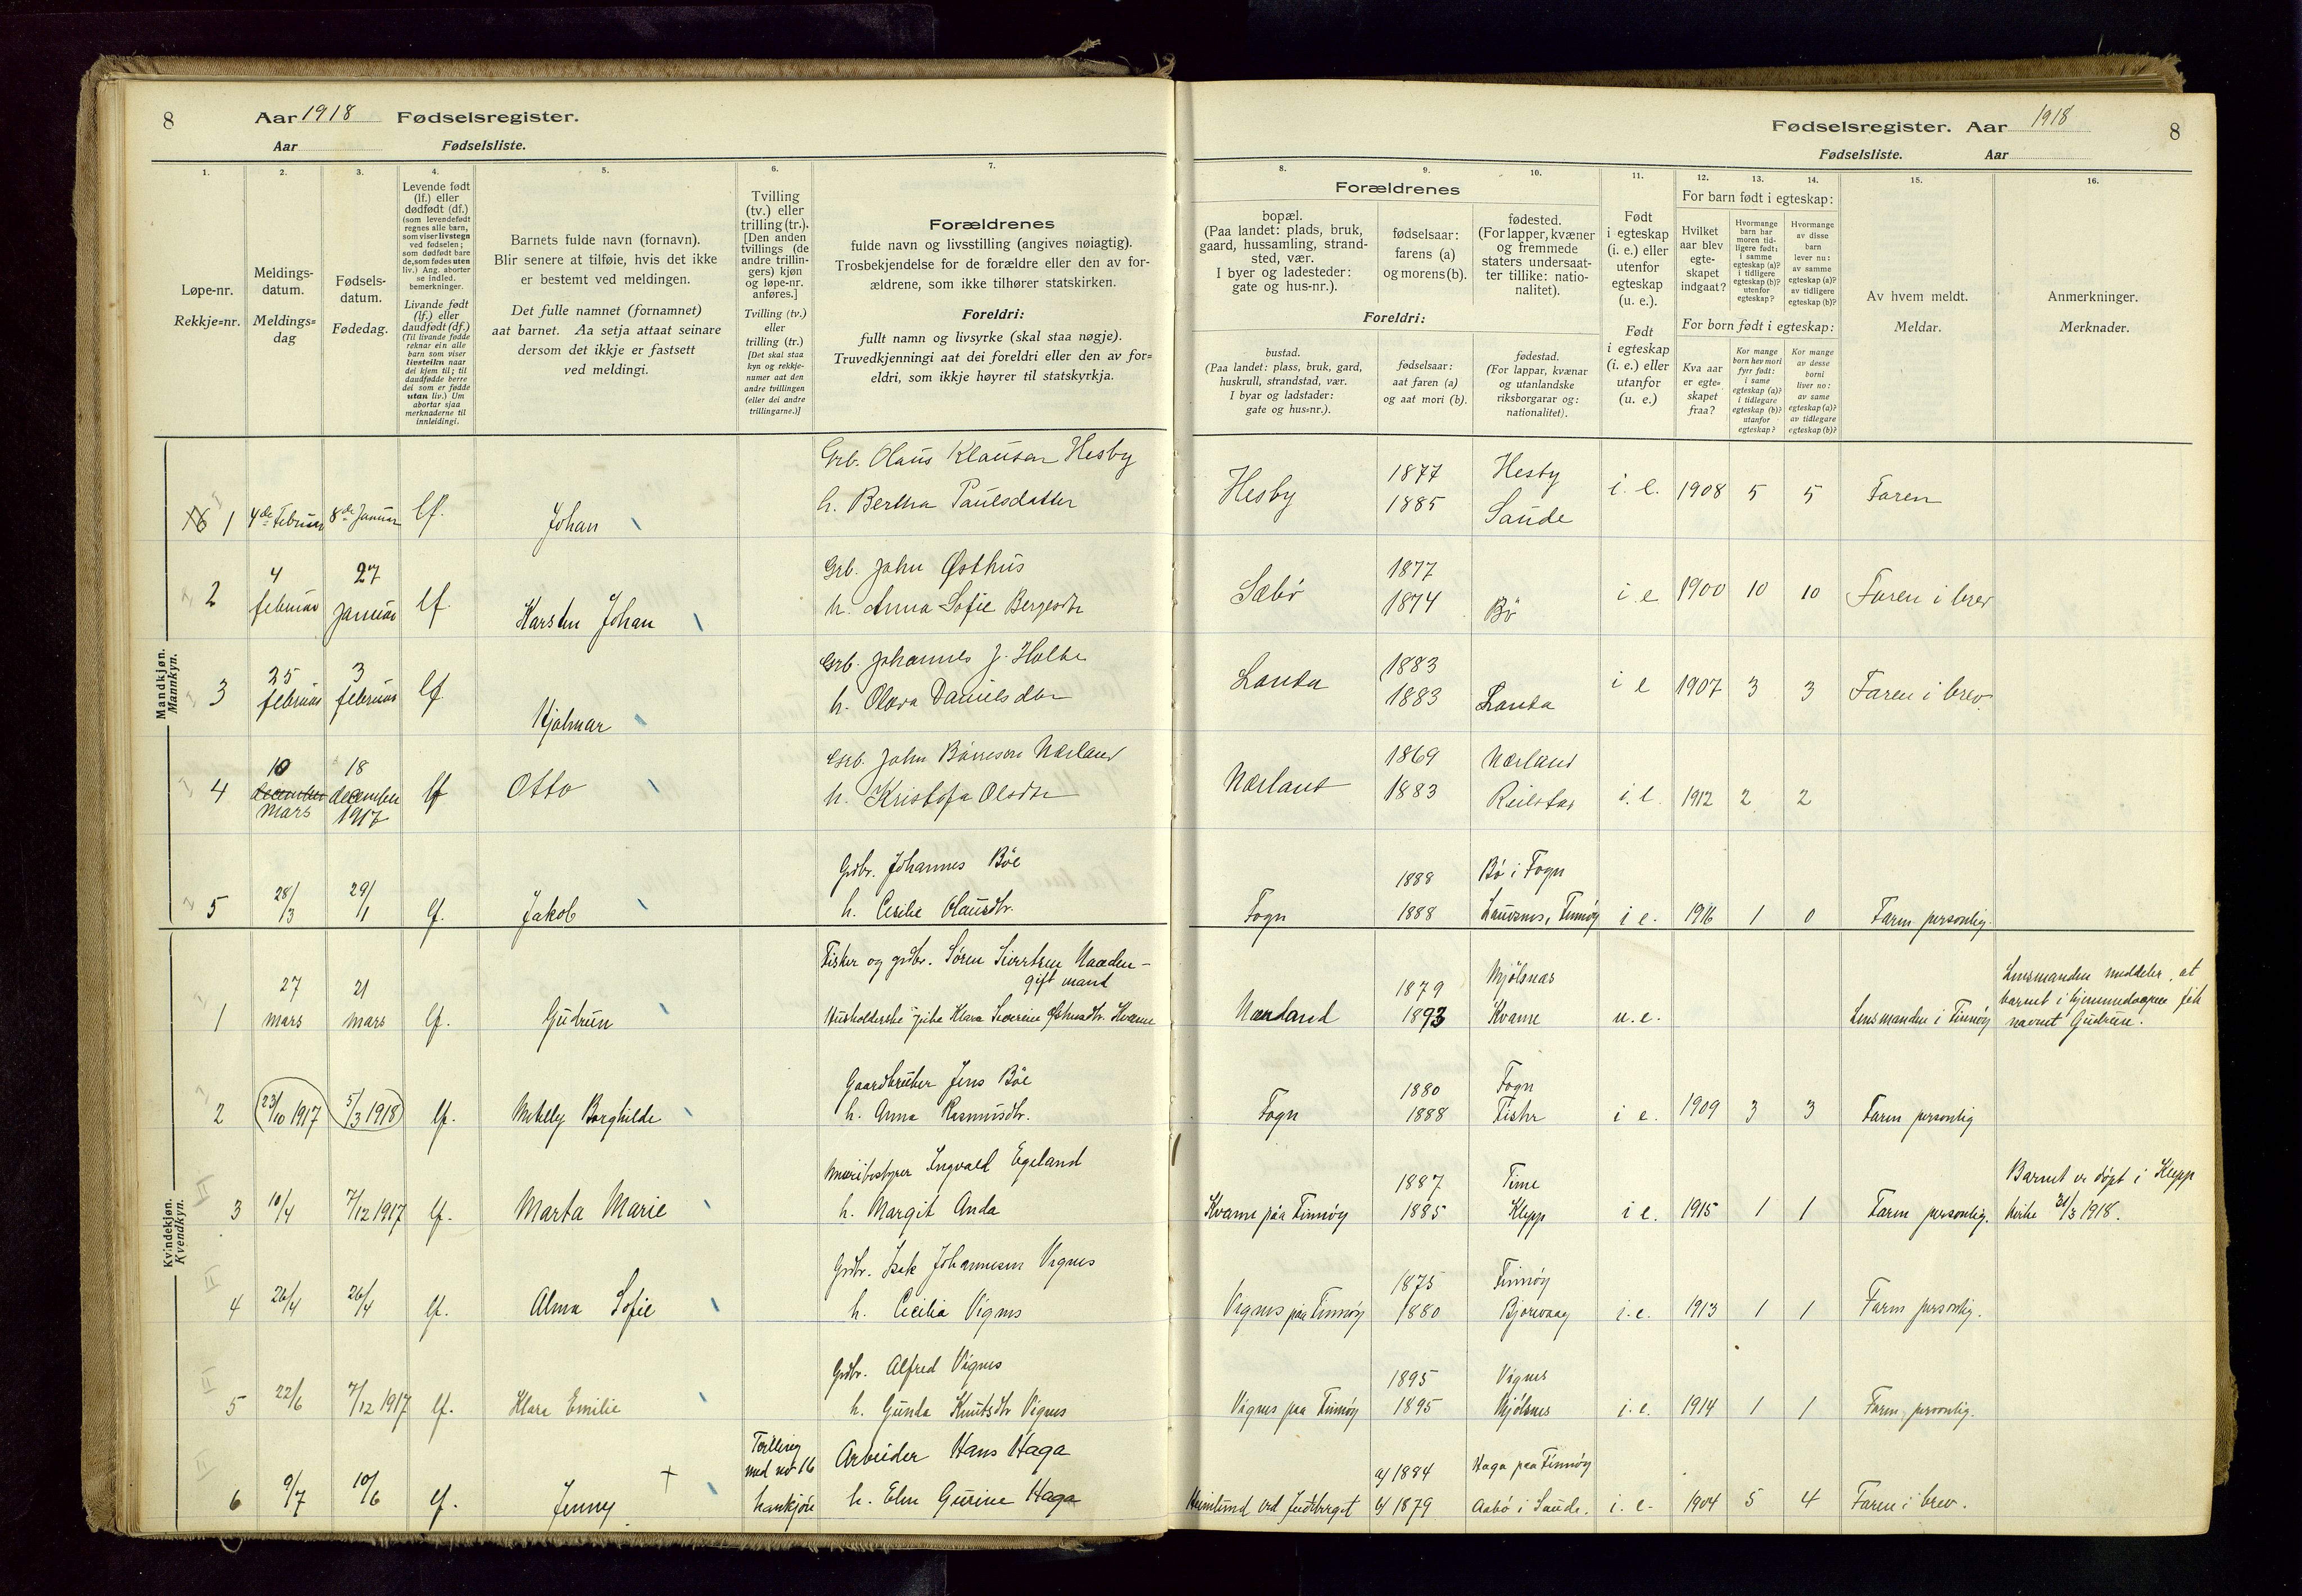 8 Aar 1918 Fødselsregister.
Aar Fødselsliste.
Fødselsregister. Aar 1918 8
Fødselsliste. Aar
1. 2. 3. 4. 5. 6. 7.
Løpe-nr.
Rekkje=nr.
Meldings-
datum.
Meldings=
dag
Fødsels-
datum.
Fødedag.
Levende født
(lf.) eller
dødfødt (df.)
(som levendefødt
regnes alle barn,
som viser livstegn
ved fødselen;
som dødfødt bare
de, som fødes uten
liv.) Ang. aborter
se indled.
bemerkninger.
Livande født
(lf.) eller
daudfødt (df.)
(Til livande fødde
reknar ein alle
barn som viser
livsteikn naar
dei kjem til; til
daudfødde berre
dei som er fødde
utan liv.) Um
abortar sjaa
merknaderne til
innleidingi.
Barnets fulde navn (fornavn).
Blir senere at tilføie, hvis det ikke
er bestemt ved meldingen.
Det fulle namnet (fornamnet)
aat barnet. Aa setja attaat seinare
dersom det ikkje er fastsett
ved meldingi.
Tvilling
(tv.) eller
trilling (tr.).
[Den anden
tvillings (de
andre trillin-
gers) kjøn
og løpe-nr.
anføres.]
Tvilling (tv.)
eller
trilling (tr.)
[Det skal staa
kyn og rekkje-
numer aat den
andre tvillingen
(eller dei andre
trillingarne.)]
Forældrenes
fulde navn og livsstilling (angives nøiagtig).
Trosbekjendelse for de forældre eller den av for-
ældrene, som ikke tilhører statskirken.
Foreldri:
fullt namn og livsyrke (skal staa nøgje).
Truvedkjenningi aat dei foreldri eller den av for=
eldri, som ikkje høyrer til statskyrkja.
8. 9. 10. 11. 12. 13. 14. 15. 16.
Forældrenes
bopæl.
(Paa landet: plads, bruk,
gaard, hussamling, strand-
sted, vær.
I byer og ladesteder:
gate og hus-nr.).
fødselsaar:
farens (a)
og morens (b).
fødested.
(For lapper, kvæner
og fremmede
staters undersaat-
ter tillike: natio-
nalitet).
Foreldri:
bustad.
(Paa landet: plass, bruk, gard,
huskrull, strandstad, vær.
I byar og ladstader:
gate og hus=nr.).
fødselsaar:
aat faren (a)
og aat mori (b).
fødestad.
(For lappar, kvænar
og utanlandske
riksborgarar og:
nationalitet).
Født
i egteskap
(i. e.) eller
utenfor
egteskap
(u. e.).
Født
i egteskap
(i. e.) eller
utanfor
(u. e.)
For barn født i egteskap:
Hvilket
aar blev
egte-
skapet
indgaat?
Hvormange
barn har
moren tid-
ligere født:
i samme
egteskap (a)?
i tidligere
egteskap (b)?
utenfor
egteskap?
Hvormange
av disse
barn
lever nu:
av samme
egteskap (a)?
av tidligere
egteskap (b)?
For born født i egteskap:
Kva aar
er egte=
skapet
fraa?
Kor mange
born hev mori
fyrr født:
i same
egteskap (a)?
i tidlegare
egteskap (b)?
utanfor
egteskap?
Kor mange
av desse
borni
liver no:
av same
egteskap (a)?
av tidlegare
egteskap (b)?
Av hvem meldt.
Meldar.
Anmerkninger.
Merknader.
Mandkjøn.
Mannkyn.
Grb. Olaus Klausen Hesby
16 1 4de Februar 8de Januar lf. Johan h. Bertha Paulsdatter
Hesby 1877 Hesby i. e. 1908 5 5 Faren
1885 Saude
4 27 Grb. John Østhus
2 februar januar lf. Karsten Johan h. Anna Sofie Bergesdtr
Sæbø 1877 i e 1900 10 10 Faren i brev
1874 Bø
25 3 Grb. Johannes J. Holte
3 februar februar lf Hjalmar h. Olava Danielsdtr
Landa 1883 i e 1907 3 3 Faren i brev.
1883 Landa
10 18 Grb. John Nærland
4 december december lf Otto h. Kristofa Olsdtr
mars 1917
Nærland 1869 Nærland i. e. 1912 2 2
1883 Reilstad
Grdbr. Johannes Bøe
5 28/3 29/1 lf. Jakob h. Cecilie Olausdtr.
1888 Bø i Fogn
Fogn 1888 Lauvsnes, Finnøy i e. 1916 1 0 Faren personlig.
Kvindekjøn.
Kvendkyn.
Fisker og grdbr. Søren Sivertsen
27 21 gift mand
1 mars mars lf. Gudrun Husholderske pike Klara Severine Kvame
1879 Mjølsnæs Lensmanden meddeler, at
Nærland 1893 Kvame u. e. Lensmanden i Finnøy barnet i hjemmedaapen fik
navnet Gudrun.
Gaardbruker Jens Bøe
2 23/10 1917 5/3 1918 lf. Borghilde h. Anna Rasmusdtr.
1880 Fogn
Fogn 1888 Fister i e. 1909 3 3 Faren personlig
Meieribestyrer Ingvald Egeland
3 10/4 7/12 1917 lf. Marta Marie h. Margit Anda
1887 Time Barnet er døpt i Klepp
Kvame paa Finnøy 1885 Klepp i e. 1915 1 1 Faren personlig. kirke 31/3 1918.
Grdbr. Isak Johannesen Vignes
4 26/4 26/4 lf. Alma Sofie h. Cecilia Vignes
1875 Finnøy
Vignes paa Finnøy 1880 Bjorevaag i. e. 1913 1 1 Faren personlig.
Grdbr. Alfred Vignes
5 22/6 7/12 1917 lf. Klara Emilie h. Gunda Knutsdtr Vignes
1895 Vignes
Vignes paa Finnøy 1895 Mjølsnes i. e. 1914 1 1 Faren personlig.
Tvilling Arbeider Hans Haga
med no 16
6 9/7 10/6 lf. Jenny + hankjøn h. Elen Gurine Haga
a/ 1884 Haga paa Finnøy
Heimlund ved b/ 1879 Aabø i Saude. i. e. 1904 5 4 Faren i brev.